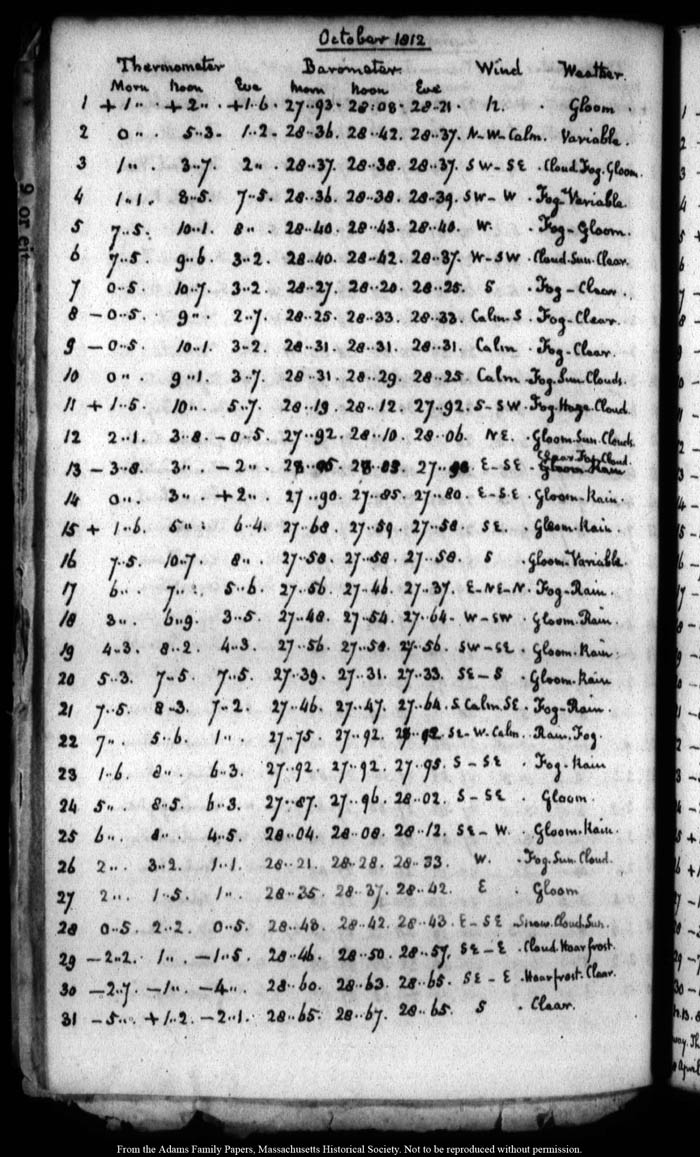 October 1812
Thermometer Barometer. Wind Weather.
Morn Noon Eve Morn Noon Eve
1 +1". +2". +1-6. 27..93. 28:08. 28-21. N. Gloom.
2 0". 5..3. 1..2. 28-36. 28..42. 28..37. N-W-Calm. Variable.
3 1". 3-7. 2". 28..37. 28..38. 28..37. SW-SE. Cloud.Fog.Gloom.
4 1..1. 8-5. 7..5. 28..36. 28..38. 28..39. SW-W. Fog-Variable.
5 7..5. 10..1. 8". 28..40. 28..43. 28..40. W. Fog-Gloom.
6 7..5. 9..6. 3..2. 28..40. 28..42. 28..37. W-SW. Cloud.Sun.Clear.
7 0..5. 10..7. 3..2. 28..27. 28..20. 28..25. S. Fog-Clear.
8 -0..5. 9". 2..7. 28..25. 28..33. 28..33. Calm.S. Fog-Clear.
9 -0..5. 10..1. 3-2. 28..31. 28..31. 28..31. Calm. Fog-Clear.
10 0". 9..1. 3..7. 28..31. 28..29. 28..25. Calm. Fog.Sun.Clouds.
11 +1..5. 10". 5..7. 28..19. 28..12. 27..92. S-SW. Fog.Haze.Cloud.
12 2..1. 3..8. -0..5. 27..92. 28..10. 28..06. NE. Gloom.Sun.Clouds
Clear.Fog.Cloud.
13 -3..8. 3". -2". 27.. E-SE. Gloom-Rain
14 0". 3". +2". 27..90. 27..85. 27..80. E-S.E. Gloom-Rain.
15 +1..6. 5". 6..4. 27..68. 27..59. 27..58. SE. Gloom.Rain.
16 7..5. 10..7. 8". 27..58. 27..58. 27..58. S. Gloom-Variable.
17 6". 7". 5..6. 27..56. 27..46. 27..37. E-NE-N. Fog-Rain.
18 3". 6..9. 3..5. 27..48. 27..54. 27..64. W-SW. Gloom.Rain.
19 4..3. 8..2. 4..3. 27..56. 27..58. 27..56. SW-SE. Gloom.Rain.
20 5..3. 7..5. 7..5. 27..39. 27..31. 27..33. SE-S. Gloom.Rain
21 7..5. 8..3. 7..2. 27..46. 27..47. 27..64. S Calm.SE. Fog-Rain.
22 7". 5..6. 1". 27..75. 27..92. 27..92. SE-W.Calm. Rain.Fog.
23 1..6. 8". 6..3. 27..92. 27..92. 27..95. S-SE. Fog.Rain
24 5". 8..5. 6..3. 27..87. 27..96. 28..02. S-SE. Gloom.
25 6". 8". 4..5. 28..04. 28..08. 28..12. SE-W. Gloom.Rain.
26 2". 3..2. 1..1. 28..21. 28..28. 28..33. W. Fog.Sun.Cloud.
27 2". 1..5. 1". 28..35. 28..37. 28..42. E. Gloom
28 0..5. 2..2. 0..5. 28..48. 28..42. 28..43. E-SE. Snow.Cloud.Sun.
29 -2..2. 1". -1..5. 28..46. 28..50. 28..57. SE-E. Cloud.Hoarfrost.
30 -2..7. -1". -4". 28..60. 28..63. 28..65. SE-E. Hoarfrost.Clear.
31 -5". +1..2. -2..1. 28..65. 28..67. 28..65. S. Clear.
From the Adams Family Papers, Massachusetts Historical Society. Not to be reproduced without permission.